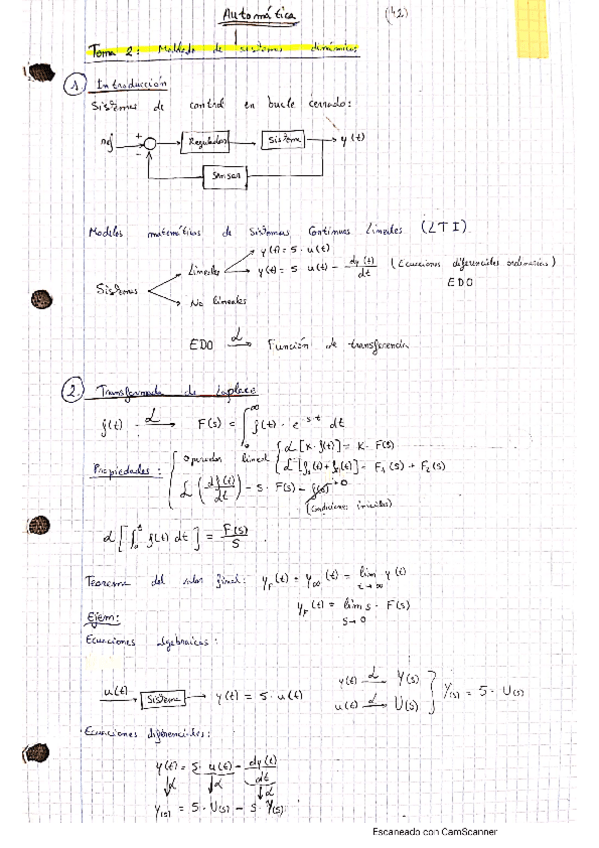 Automática
(42)
Tema 2: Modelado de sistemas dinámicos
1. Introducción
Sistemas de control en bucle cerrado:
ref + - Regulador Sistema y(t)
Sensor
Modelos matemáticos de Sistemas Continuos Lineales (LTI)
y(t) = 5 · u(t)
Sistemas Lineales y(t) = 5 u(t) - dy(t)/dt (Ecuaciones diferenciales ordinarias)
EDO
No lineales
EDO ℒ→ Función de transferencia
2. Transformada de Laplace
f(t) ℒ→ F(s) = ∫₀^∞ f(t) · e^-st dt
Propiedades: operador lineal { ℒ[K · f(t)] = K · F(s)
ℒ[f₁(t) + f₂(t)] = F₁(s) + F₂(s)
ℒ(df(t)/dt) = s · F(s) - f(0) → 0
(condiciones iniciales)
ℒ[∫₀ᵗ f(t) dt] = F(s)/s
Teorema del valor final: y_F(t) = y∞(t) = lim t→∞ y(t)
y_F(t) = lim s→0 s · F(s)
Ejem:
Ecuaciones algebraicas:
u(t) → Sistema → y(t) = 5 · u(t) y(t) ℒ→ Y(s) u(t) ℒ→ U(s) } Y(s) = 5 · U(s)
Ecuaciones diferenciales:
y(t) = 5 · u(t) - dy(t)/dt
↓ℒ ↓ℒ ↓ℒ
Y(s) = 5 · U(s) - s · Y(s)
Escaneado con CamScanner